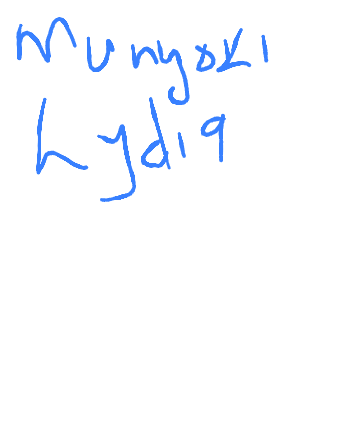 Munyoki
Lydia